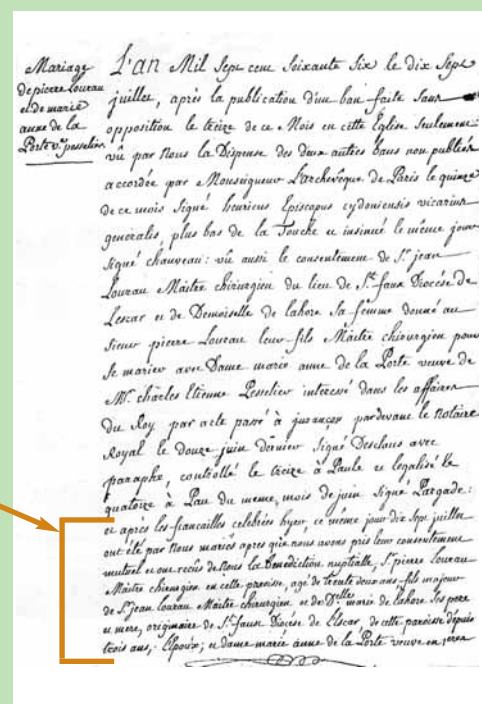 Mariage
de pierre Louzau
et de marie
anne de la
Porte v.e pesselier
L'an Mil Sept cent Soixante Six le dix Sept
juillet, après la publication d'un ban faite Sans
opposition le treize de ce Mois en cette Eglise Seulement:
vû par Nous la Dispense des deux autres bans non publiés
accordée par Monseigneur L'archevêque de Paris le quinze
de ce mois Signé henricus Episcopus cydoniensis vicarius
generalis, plus bas de la Touche et insinué le même jour
Signé chauveau: vû aussi le consentement de S.r jean
Louzau Maitre chirurgien du lieu de S.t faux Diocése de
Lescar et de Demoiselle de lahore Sa femme donné au
Sieur pierre Louzau leur fils Maitre chirurgien pour
Se marier avec Dame marie anne de la Porte veuve de
M.r charles Etienne Pesselier interessé dans les affaires
du Roy par acte passé à jurançon pardevant le Notaire
Royal le douze juin dernier Signé Desclaus avec
paraphe, controllé le treize à Paule et legalisé le
quatorze à Pau du meme mois de juin Signé Pargade:
et après les fiancailles celebrées hyer, ce même jour dix Sept juillet
ont été par Nous mariés apres que nous avons pris leur consentement
mutuel et ont recûs de Nous la Benediction nuptialle, S.r pierre Louzau
Maitre chirurgien en cette paroisse, agé de trente deux ans fils majeur
de S.r jean Louzau Maitre chirurgien et de D.elle marie de lahore Ses pere
et mere, originaire de S.t faust Diocèse de Elscar, de cette paroisse depuis
trois ans, Epoux; et dame marie anne de la Porte veuve en